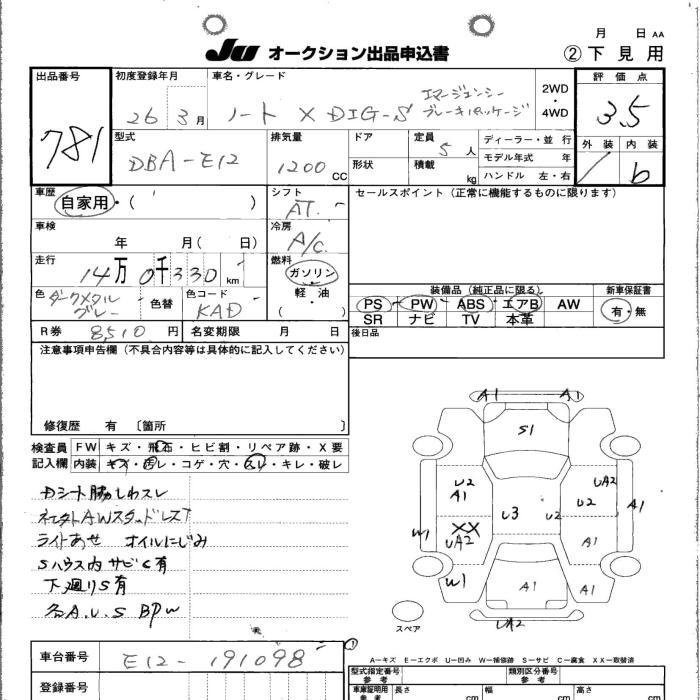 月 日 AA
JU オークション出品申込書 ② 下見用
出品番号 初度登録年月 車名・グレード 2WD ・ 4WD 評価点
781 26 3月 ノート X DIG-S エマージェンシーブレーキパッケージ 3.5
型式 排気量 ドア 定員 ディーラー・並行 外装 内装
DBA-E12 1200 CC 形状 5人 モデル年式 年 b
積載 kg ハンドル 左・右
車歴 シフト セールスポイント(正常に機能するものに限ります)
自家用・( ) AT.
車検 冷房
年 月( 日) A/C
走行 燃料
14万0千330km ガソリン 装備品(純正品に限る) 新車保証書
色 ダークメタルグレー 色替 色コード KAD 軽油 ( ) PS PW ABS エアB AW 有・無
SR ナビ TV 本革
R券 8,510円 名変期限 月 日 後日品
注意事項申告欄(不具合内容等は具体的に記入してください)
修復歴 有 〔箇所 〕
検査員 FW キズ・飛石・ヒビ割・リペア跡・X要
記入欄 内装 キズ・汚レ・コゲ・穴・スレ・キレ・破レ
Dシート脇しわスレ
AWスタッドレス
ライトあせ オイルにじみ
Sハウス内サビC有
下廻りS有
各A.U.S BPW
A1 A1
S1
U2 UA2
A1 U2 A1
U3 U2
W1 XX A1
UA2
W1 A1 A1
UA2
スペア
A-キズ E-エクボ U-凹み W-補修跡 S-サビ C-腐食 XX-取替済
車台番号 E12-191098
登録番号
型式指定番号 参考 類別区分番号 参考
車庫証明用 参考 長さ cm 幅 cm 高さ cm